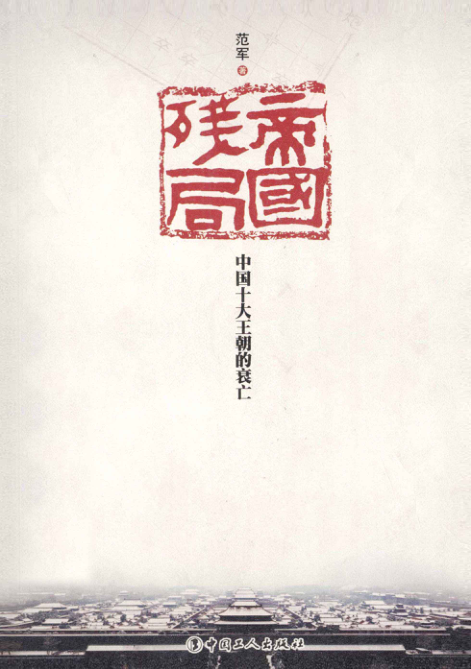 范军 著
帝國
残局
中国十大王朝的衰亡
中国工人出版社